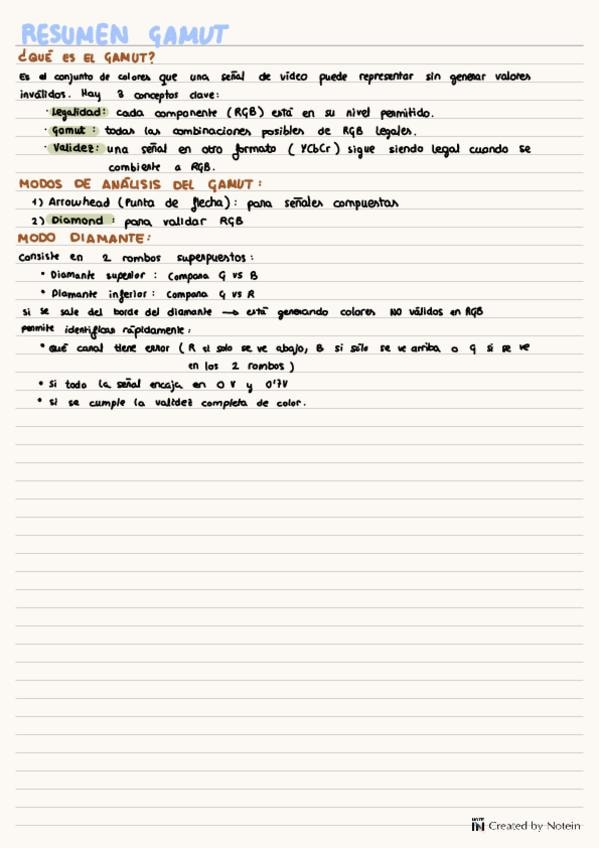 RESUMEN GAMUT
¿QUÉ ES EL GAMUT?
Es el conjunto de colores que una señal de vídeo puede representar sin generar valores
inválidos. Hay 3 conceptos clave:
· Legalidad: cada componente (RGB) está en su nivel permitido.
· Gamut: todas las combinaciones posibles de RGB legales.
· Validez: una señal en otro formato (YCbCr) sigue siendo legal cuando se
combierte a RGB.
MODOS DE ANÁLISIS DEL GAMUT:
1) Arrowhead (Punta de flecha): para señales compuestas
2) Diamond: para validar RGB
MODO DIAMANTE:
Consiste en 2 rombos superpuestos:
• Diamante superior: Compara G vs B
• Diamante inferior: Compara G vs R
si se sale del borde del diamante → está generando colores NO válidos en RGB
permite identificar rápidamente:
• qué canal tiene error (R si solo se ve abajo, B si sólo se ve arriba o G si se ve
en los 2 rombos)
• si todo la señal encaja en 0V y 0'7V
• si se cumple la validez completa de color.
IN Created by Notein